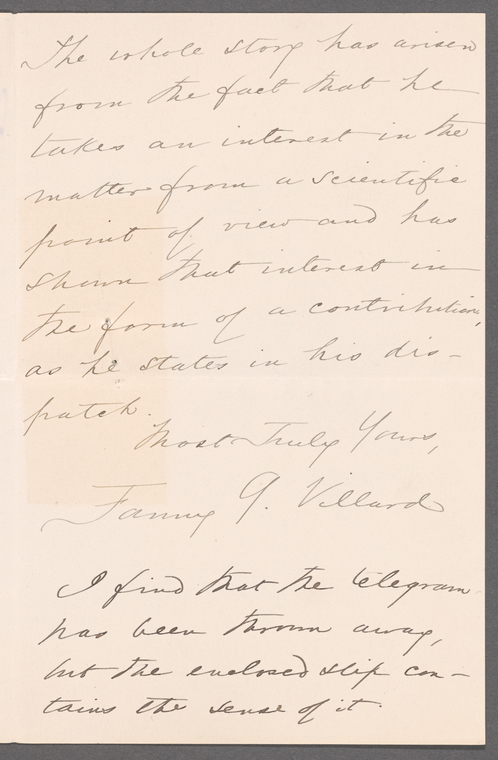 The whole story has arisen
from the fact that he
takes an interest in the
matter from a scientific
point of view and has
shown that interest in
the form of a contribution,
as he states in his dis-
patch.
Most Truly Yours,
Fanny G. Villard
I find that the telegram
has been thrown away,
but the enclosed slip con-
tains the sense of it.